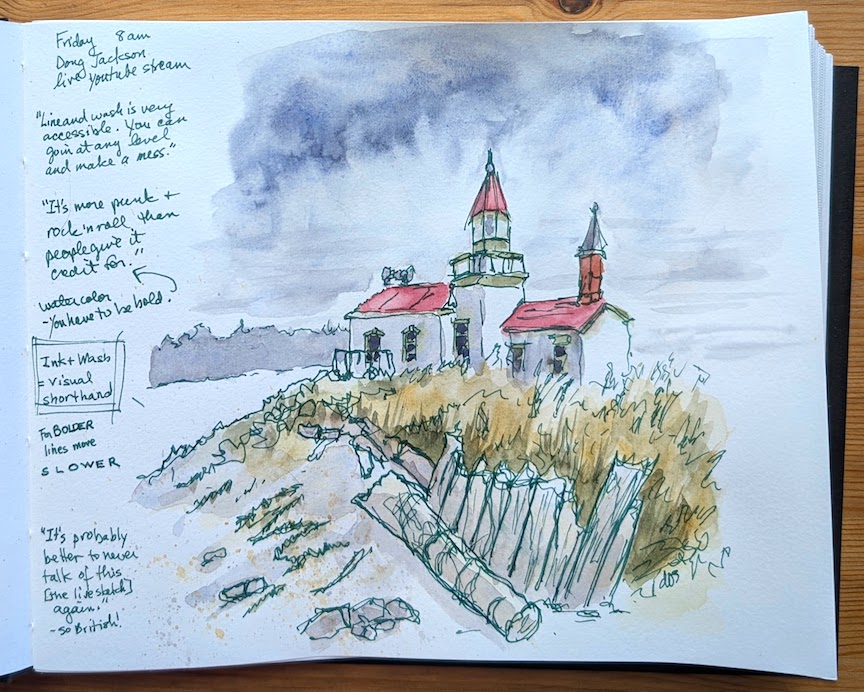 Friday 8am
Doug Jackson
live Youtube stream
"Line and wash is very
accessible. You can
go in at any level
and make a mess."
"It's more punk +
rock 'n roll than
people give it
credit for."
watercolor
- You have to be bold.
Ink + Wash
= visual
shorthand
For BOLDER
lines move
SLOWER
"It's probably
better to never
talk of this
[the live sketch]
again."
- so British!